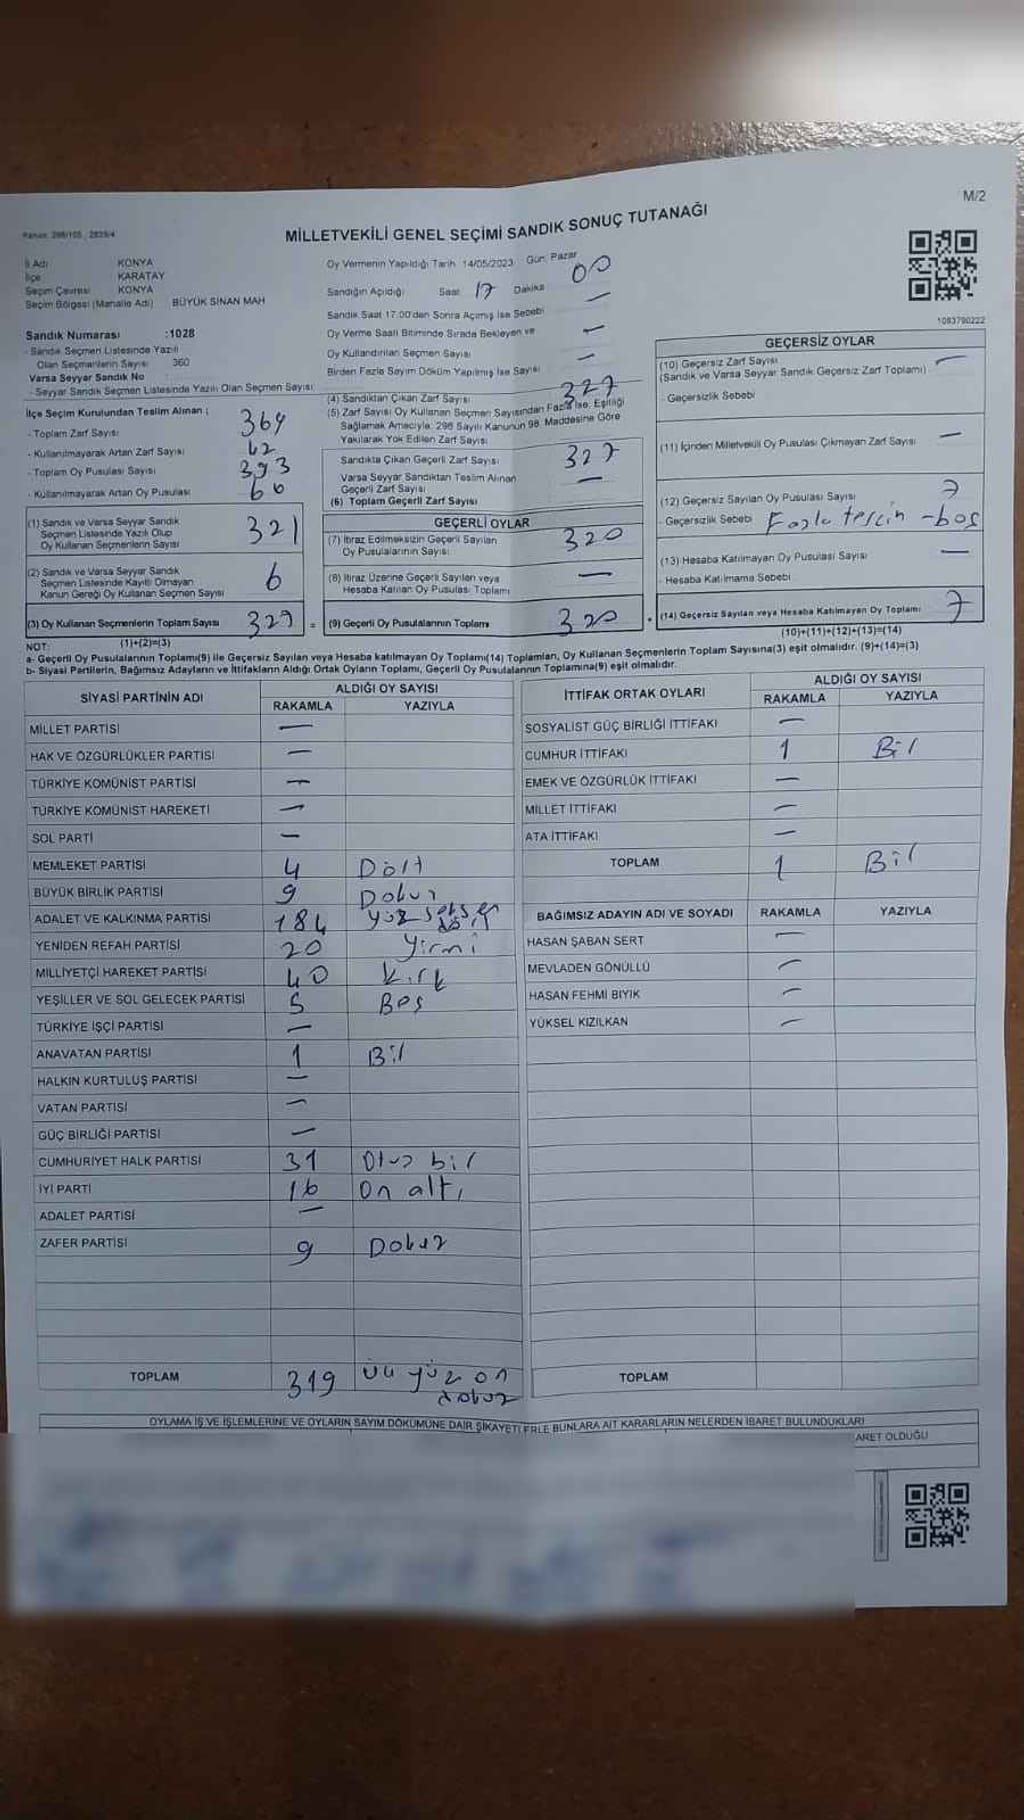 M/2
MİLLETVEKİLİ GENEL SEÇİMİ SANDIK SONUÇ TUTANAĞI
İl Adı KONYA
İlçe KARATAY
Seçim Çevresi KONYA
Seçim Bölgesi (Mahalle Adı) BÜYÜK SİNAN MAH
Sandık Numarası :1028
- Sandık Seçmen Listesinde Yazılı
Olan Seçmenlerin Sayısı 360
Varsa Seyyar Sandık No
- Seyyar Sandık Seçmen Listesinde Yazılı Olan Seçmen Sayısı
Oy Vermenin Yapıldığı Tarih 14/05/2023 Gün Pazar
Sandığın Açıldığı Saat 17 Dakika 00
Sandık Saat 17.00'den Sonra Açılmış İse Sebebi —
Oy Verme Saati Bitiminde Sırada Bekleyen ve —
Oy Kullandırılan Seçmen Sayısı
Birden Fazla Sayım Döküm Yapılmış İse Sayısı —
1083790222
İlçe Seçim Kurulundan Teslim Alınan :
- Toplam Zarf Sayısı 364
- Kullanılmayarak Artan Zarf Sayısı
- Toplam Oy Pusulası Sayısı 393
- Kullanılmayarak Artan Oy Pusulası 66
(1) Sandık ve Varsa Seyyar Sandık
Seçmen Listesinde Yazılı Olup
Oy Kullanan Seçmenlerin Sayısı 321
(2) Sandık ve Varsa Seyyar Sandık
Seçmen Listesinde Kayıtlı Olmayan
Kanun Gereği Oy Kullanan Seçmen Sayısı 6
(3) Oy Kullanan Seçmenlerin Toplam Sayısı 327 =
(1)+(2)=(3)
(4) Sandıktan Çıkan Zarf Sayısı 327
(5) Zarf Sayısı Oy Kullanan Seçmen Sayısından Fazla İse, Eşitliği
Sağlamak Amacıyla; 298 Sayılı Kanunun 98. Maddesine Göre
Yakılarak Yok Edilen Zarf Sayısı
Sandıkta Çıkan Geçerli Zarf Sayısı 327
Varsa Seyyar Sandıktan Teslim Alınan
Geçerli Zarf Sayısı —
(6) Toplam Geçerli Zarf Sayısı
GEÇERLİ OYLAR
(7) İtiraz Edilmeksizin Geçerli Sayılan
Oy Pusulalarının Sayısı 320
(8) İtiraz Üzerine Geçerli Sayılan veya
Hesaba Katılan Oy Pusulası Toplamı —
(9) Geçerli Oy Pusulalarının Toplamı 320
GEÇERSİZ OYLAR
(10) Geçersiz Zarf Sayısı —
(Sandık ve Varsa Seyyar Sandık Geçersiz Zarf Toplamı)
- Geçersizlik Sebebi
(11) İçinden Milletvekili Oy Pusulası Çıkmayan Zarf Sayısı —
(12) Geçersiz Sayılan Oy Pusulası Sayısı 7
- Geçersizlik Sebebi Fazla tercih - boş
(13) Hesaba Katılmayan Oy Pusulası Sayısı —
- Hesaba Katılmama Sebebi
(14) Geçersiz Sayılan veya Hesaba Katılmayan Oy Toplamı 7
(10)+(11)+(12)+(13)=(14)
NOT:
a- Geçerli Oy Pusulalarının Toplamı(9) ile Geçersiz Sayılan veya Hesaba katılmayan Oy Toplamı(14) Toplamları, Oy Kullanan Seçmenlerin Toplam Sayısına(3) eşit olmalıdır. (9)+(14)=(3)
b- Siyasi Partilerin, Bağımsız Adayların ve İttifakların Aldığı Ortak Oyların Toplamı, Geçerli Oy Pusulalarının Toplamına(9) eşit olmalıdır.
SİYASİ PARTİNİN ADI ALDIĞI OY SAYISI
RAKAMLA YAZIYLA
MİLLET PARTİSİ —
HAK VE ÖZGÜRLÜKLER PARTİSİ —
TÜRKİYE KOMÜNİST PARTİSİ —
TÜRKİYE KOMÜNİST HAREKETİ —
SOL PARTİ —
MEMLEKET PARTİSİ 4 Dört
BÜYÜK BİRLİK PARTİSİ 9 Dokuz
ADALET VE KALKINMA PARTİSİ 184 yüz seksen dört
YENİDEN REFAH PARTİSİ 20 Yirmi
MİLLİYETÇİ HAREKET PARTİSİ 40 kırk
YEŞİLLER VE SOL GELECEK PARTİSİ 5 Beş
TÜRKİYE İŞÇİ PARTİSİ —
ANAVATAN PARTİSİ 1 Bir
HALKIN KURTULUŞ PARTİSİ —
VATAN PARTİSİ —
GÜÇ BİRLİĞİ PARTİSİ —
CUMHURİYET HALK PARTİSİ 31 Otuz bir
İYİ PARTİ 16 On altı
ADALET PARTİSİ —
ZAFER PARTİSİ 9 Dokuz
TOPLAM 319 üç yüz on dokuz
İTTİFAK ORTAK OYLARI ALDIĞI OY SAYISI
RAKAMLA YAZIYLA
SOSYALİST GÜÇ BİRLİĞİ İTTİFAKI —
CUMHUR İTTİFAKI 1 Bir
EMEK VE ÖZGÜRLÜK İTTİFAKI —
MİLLET İTTİFAKI —
ATA İTTİFAKI —
TOPLAM 1 Bir
BAĞIMSIZ ADAYIN ADI VE SOYADI RAKAMLA YAZIYLA
HASAN ŞABAN SERT —
MEVLADEN GÖNÜLLÜ —
HASAN FEHMİ BIYIK —
YÜKSEL KIZILKAN —
TOPLAM
OYLAMA İŞ VE İŞLEMLERİNE VE OYLARIN SAYIM DÖKÜMÜNE DAİR ŞİKAYETLERLE BUNLARA AİT KARARLARIN NELERDEN İBARET BULUNDUKLARI
ARET OLDUĞU